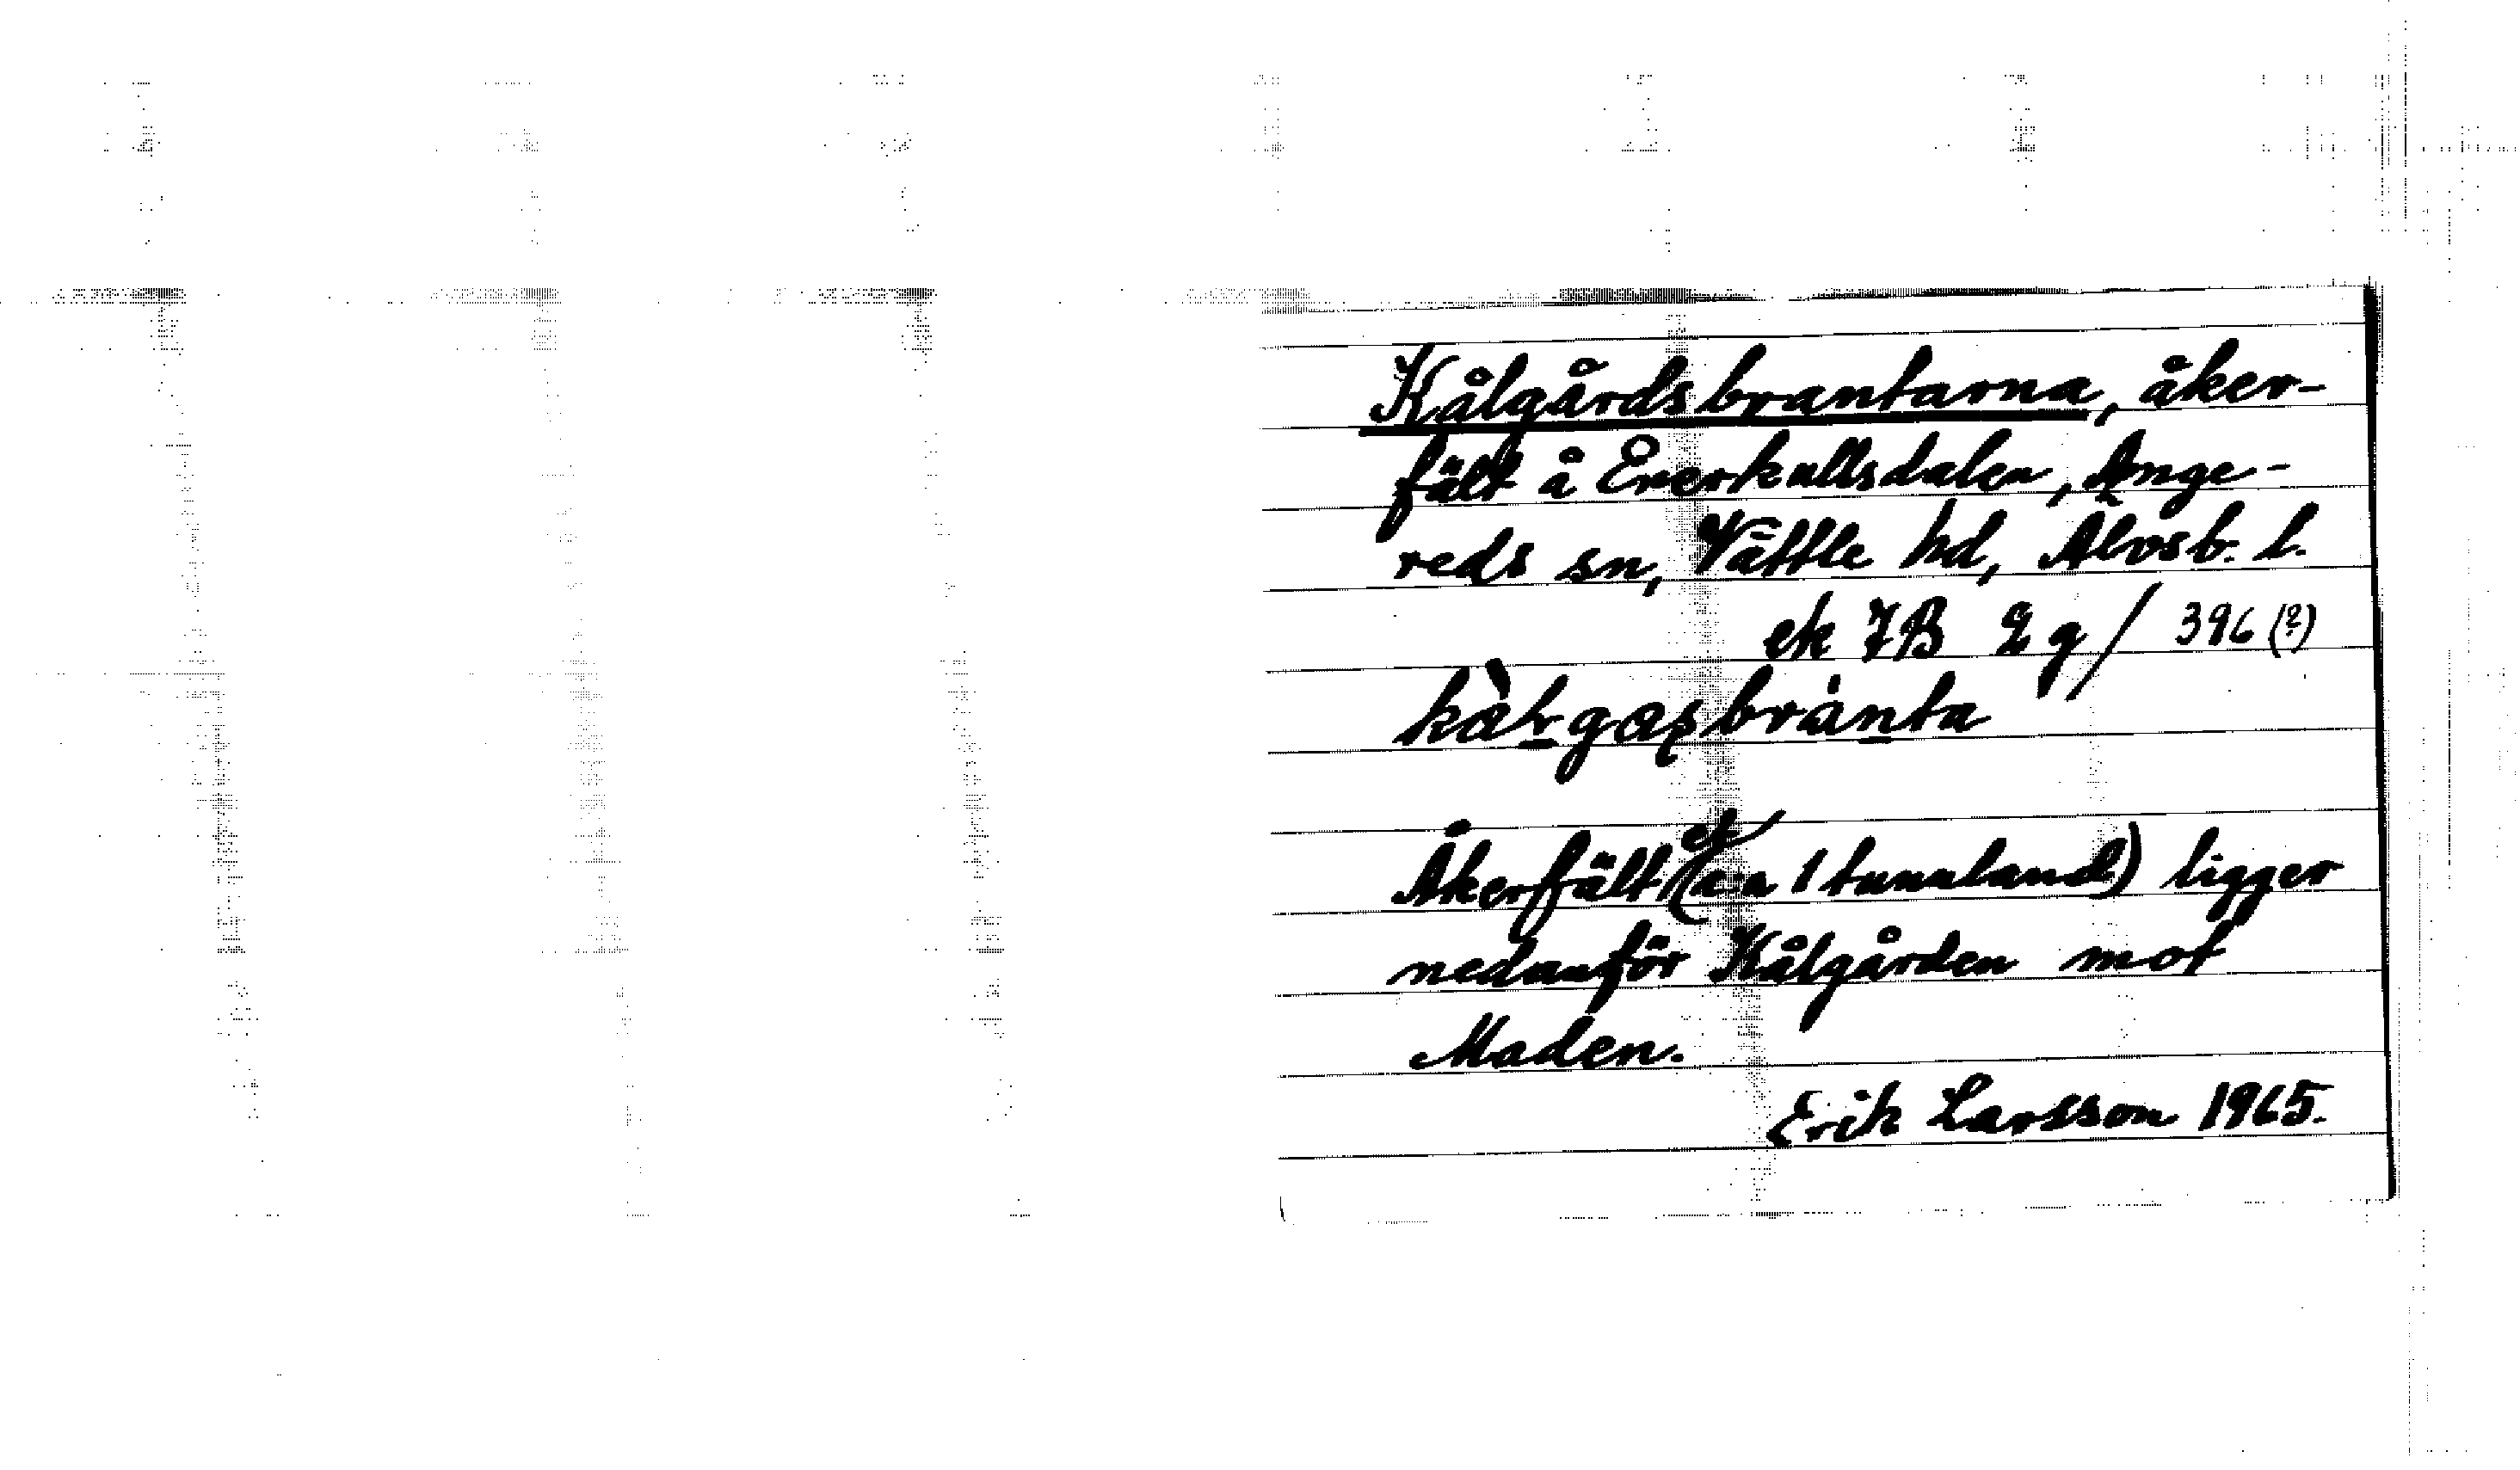 Kålgårdsbrantarna, åker-
fält å Enerkullsdalen, Ange-
reds sn, Vättle hd, Älvsb. l.
ek 7B 2g/ 396 (?)
Åkerfält (c:a 1 tunnland) ligger
nedanför Kålgården mot
Maden.
Erik Larsson 1965.